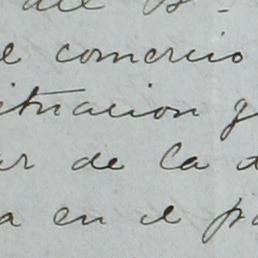 el comercio
situacion y
ar de la
a en el